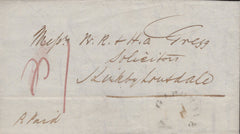 Messrs W. R. & H. a Gregg
Solicitors
Kirkby Lonsdale
Paid